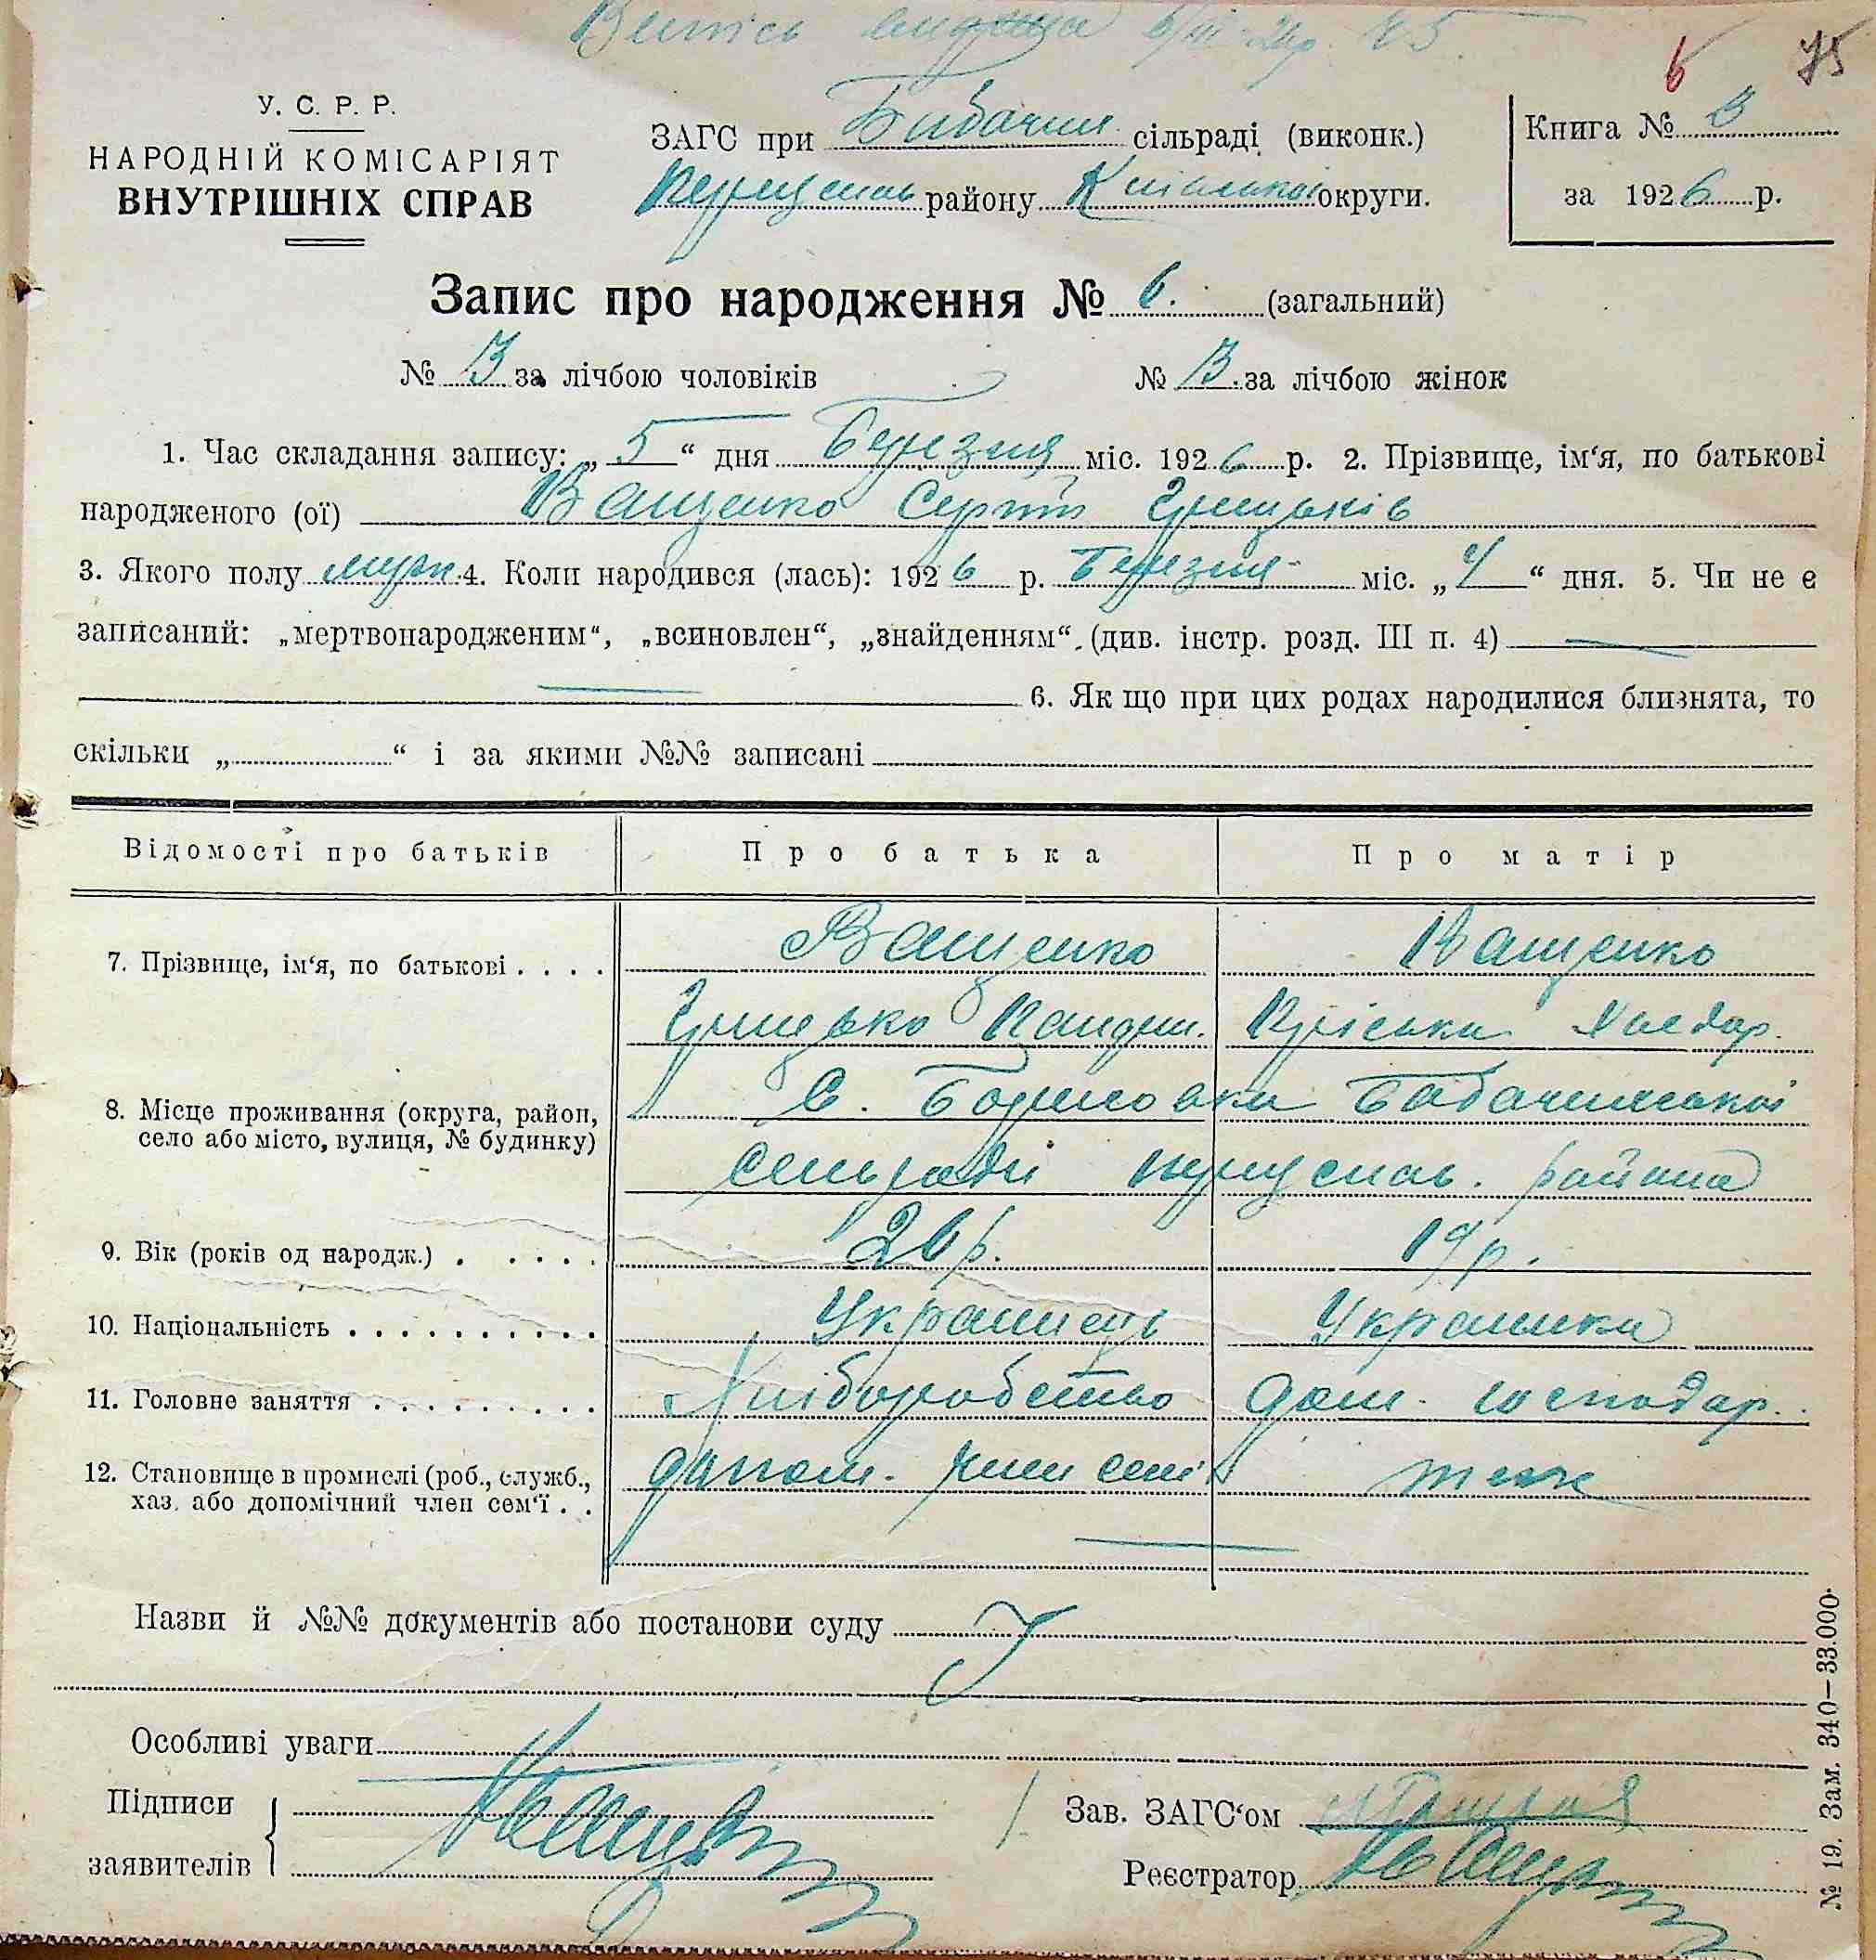 Випись видана 6/III-26р. №5
6 75
У. С. Р. Р.
НАРОДНІЙ КОМІСАРІЯТ
ВНУТРІШНІХ СПРАВ
ЗАГС при Бабачин. сільраді (виконк.)
району Київської округи.
Книга № В
за 1926 р.
Запис про народження № 6. (загальний)
№ 3 за лічбою чоловіків № 3. за лічбою жінок
1. Час складання запису: „5“ дня Березня міс. 1926 р. 2. Прізвище, ім‘я, по батькові
народженого (ої) Ващенко Сергій Грицьків
3. Якого полу муж. 4. Коли народився (лась): 1926 р. Березня міс. „4“ дня. 5. Чи не є
записаний: „мертвонародженим“, „всиновлен“, „знайденням“. (див. інстр. розд. III п. 4)
6. Як що при цих родах народилися близнята, то
скільки „ “ і за якими №№ записані
Відомості про батьків Про батька Про матір
7. Прізвище, ім‘я, по батькові . . . . Ващенко Ващенко
Грицько Пріська
8. Місце проживання (округа, район,
село або місто, вулиця, № будинку)
С. Бабачинської
сільради район
9. Вік (років од народж.) . . . . . 26 р. 19 р.
10. Національність . . . . . . . . . . Українець Українка
11. Головне заняття . . . . . . . . . Хліборобство дом. господар.
12. Становище в промислі (роб., служб.,
хаз. або допомічний член сем‘ї . .
допом. член семі теж
Назви й №№ документів або постанови суду
Особливі уваги
Підписи
заявителів
Зав. ЗАГС‘ом
Реєстратор
№ 19. Зам. 340—33.000.